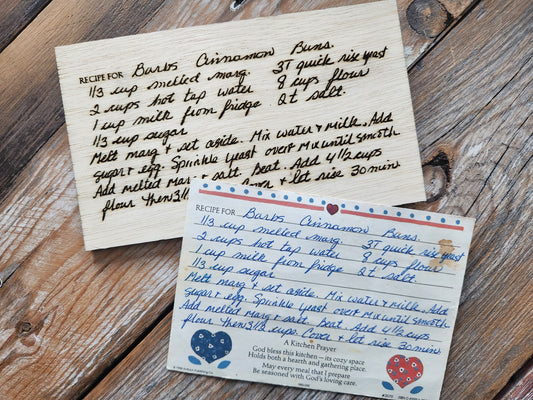 RECIPE FOR Barbs Cinnamon Buns.
1/3 cup melted marg. 3T quick rise yeast
2 cups hot tap water 8 cups flour
1 cup milk from fridge 2t salt.
1/3 cup sugar
Melt marg & set aside. Mix water & milk. Add
sugar & egg. Sprinkle yeast over & Mix until smooth
Add melted Marg & salt. beat. Add 4 1/2 cups
flour then 3 1/2 Cover & let rise 30 min
RECIPE FOR Barbs Cinnamon Buns.
1/3 cup melted marg. 3T quick rise yeast
2 cups hot tap water 8 cups flour
1 cup milk from fridge 2t salt.
1/3 cup sugar
Melt marg & set aside. Mix water & milk. Add
sugar & egg. Sprinkle yeast over & Mix until smooth
Add melted Marg & salt. beat. Add 4 1/2 cups
flour then 3 1/2 cups. Cover & let rise 30 min
A Kitchen Prayer
God bless this kitchen—its cozy space
Holds both a hearth and gathering place.
May every meal that I prepare
Be seasoned with God's loving care.